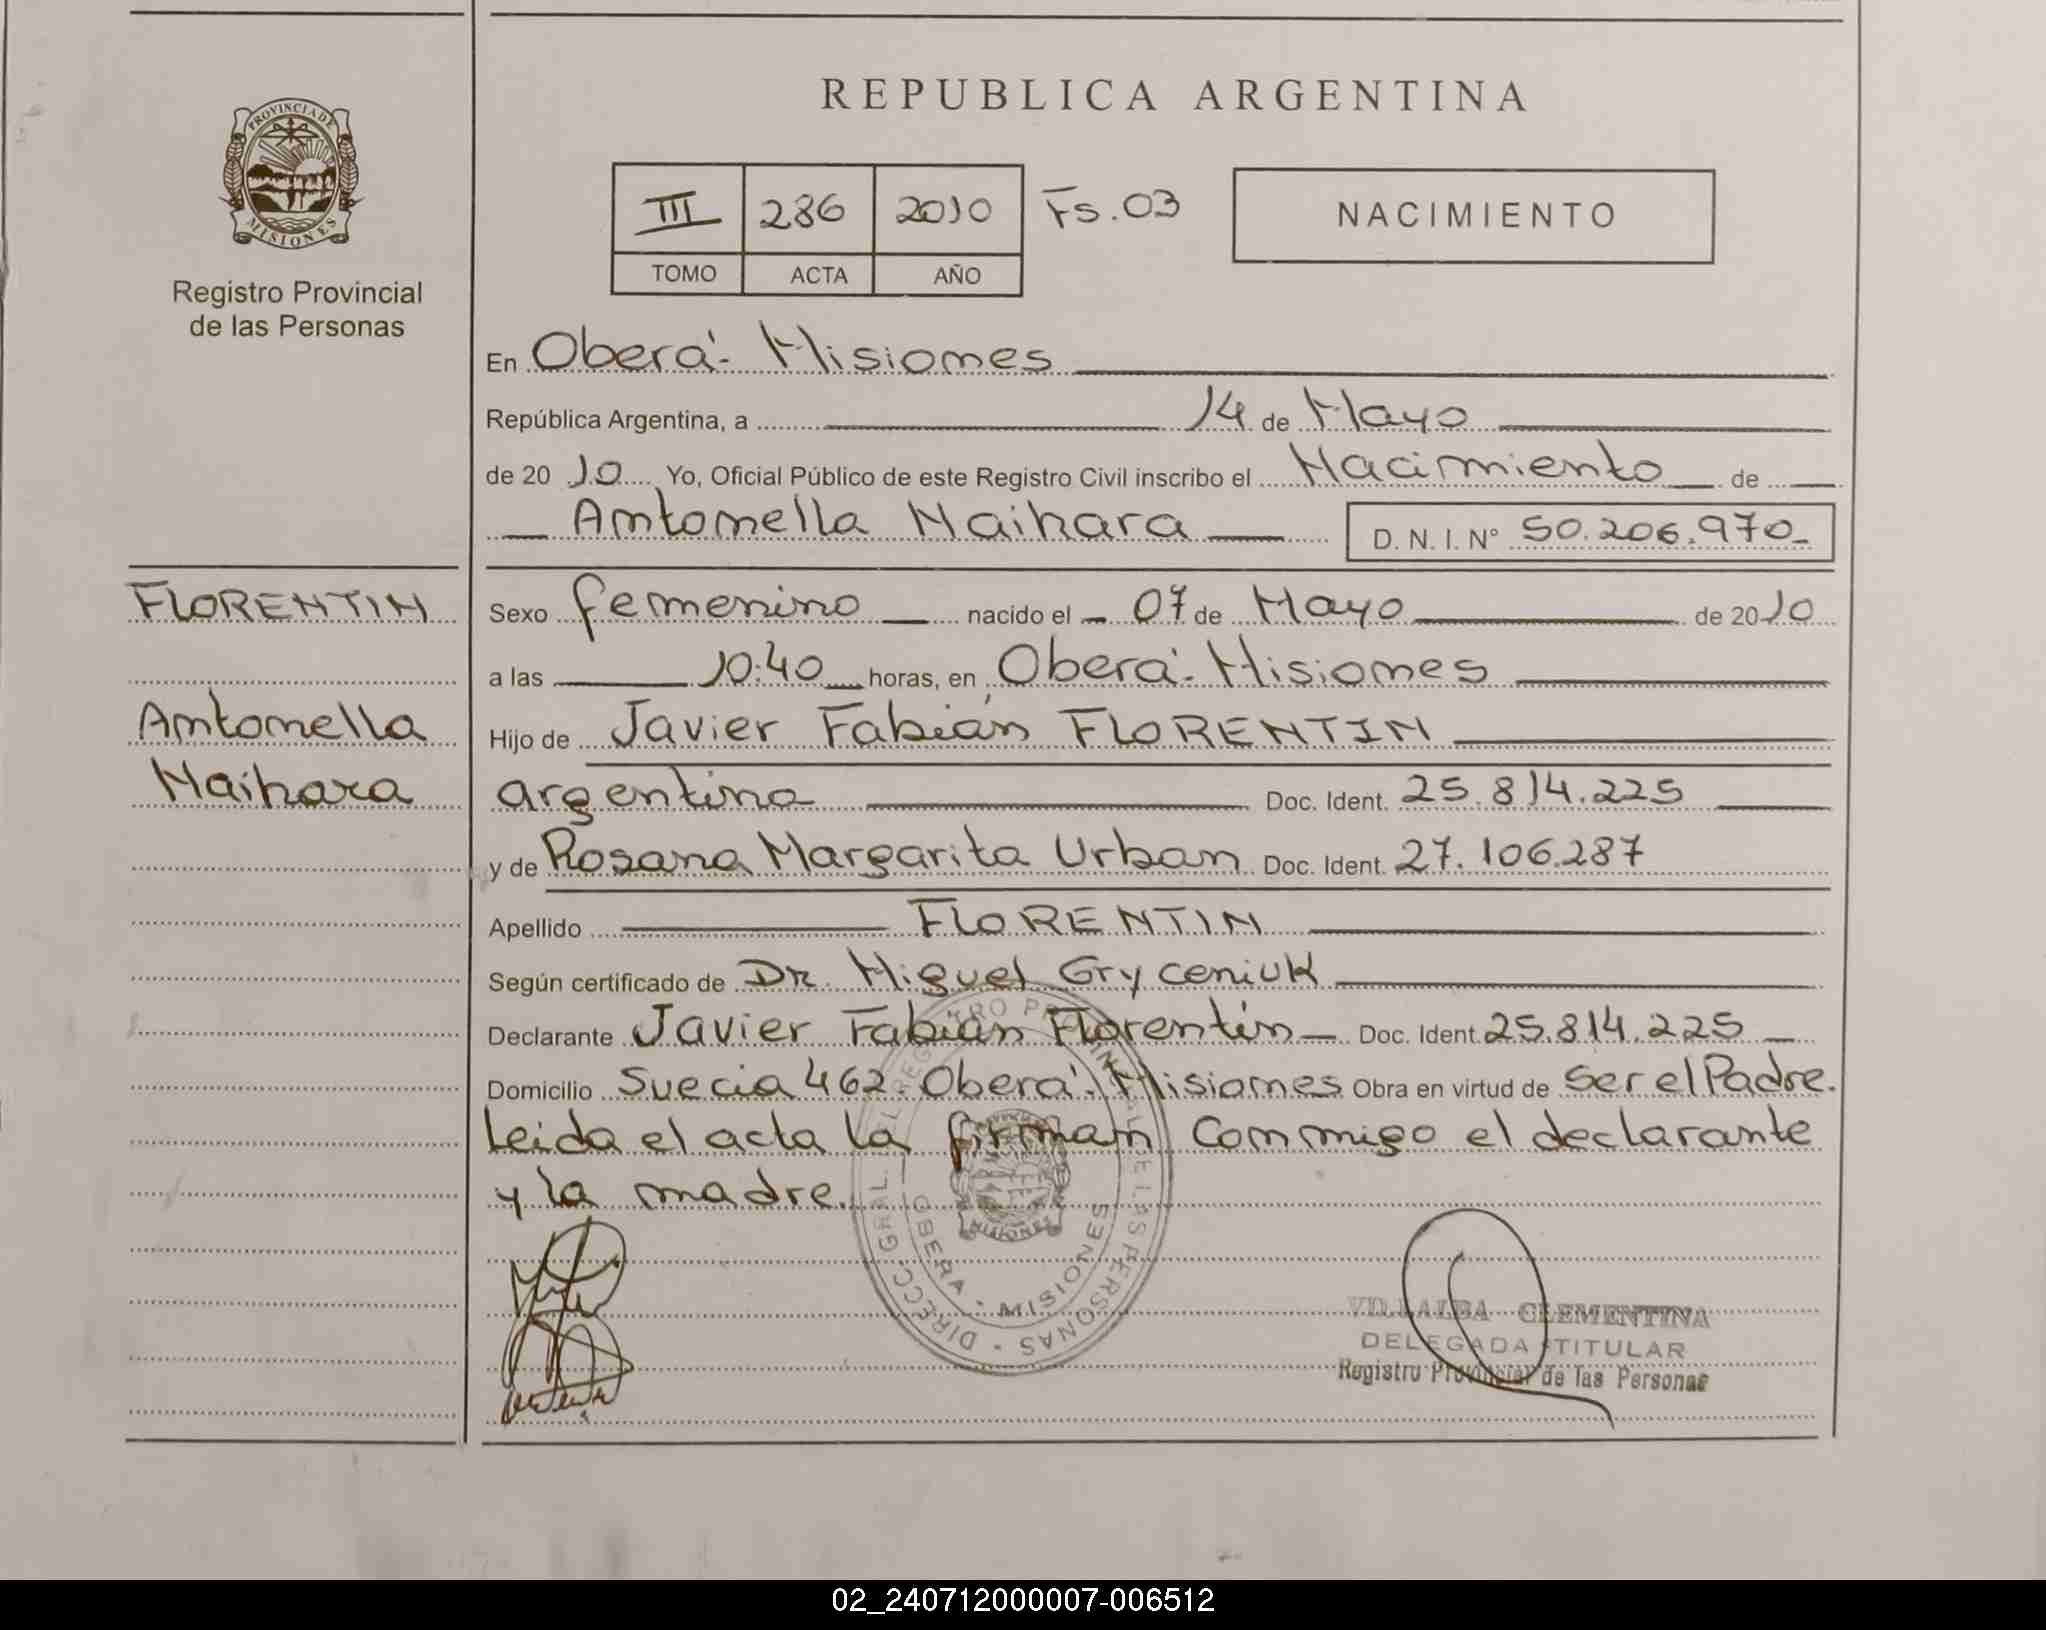 REPUBLICA ARGENTINA
PROVINCIA DE
MISIONES
Registro Provincial
de las Personas
III 286 2010 Fs. 03
TOMO ACTA AÑO
NACIMIENTO
En Oberá - Misiones
República Argentina, a 14 de Mayo
de 2010 Yo, Oficial Público de este Registro Civil inscribo el Nacimiento de
Antonella Naihara D. N. I. N° 50.206.970-
FLORENTIN
Antonella
Naihara
Sexo femenino nacido el 07 de Mayo de 2010
a las 10:40 horas, en Oberá - Misiones
Hijo de Javier Fabián FLORENTIN
argentino Doc. Ident. 25.814.225
y de Rosana Margarita Urban Doc. Ident. 27.106.287
Apellido FLORENTIN
Según certificado de Dr. Miguel Gryceniuk
Declarante Javier Fabián Florentín Doc. Ident. 25.814.225
Domicilio Suecia 462. Oberá - Misiones Obra en virtud de ser el Padre.
Leida el acta la firman conmigo el declarante
y la madre.
DIRECC. GRAL. DEL REGISTRO PROVINCIAL DE LAS PERSONAS
OBERA - MISIONES
MISIONES
VILLALBA CLEMENTINA
DELEGADA TITULAR
Registro Provincial de las Personas
02_240712000007-006512